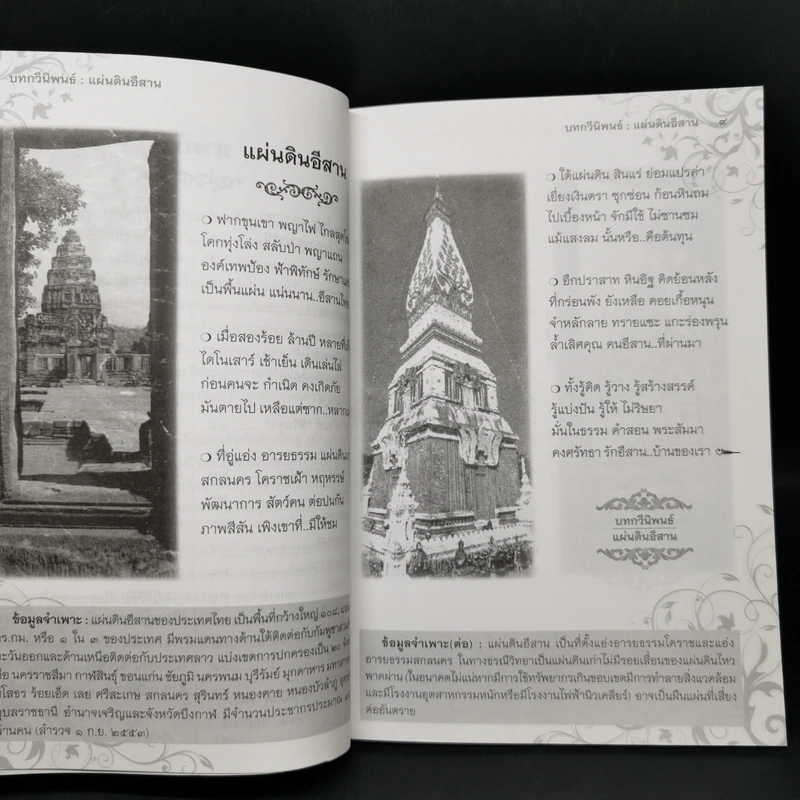 บทกวีนิพนธ์ : แผ่นดินอีสาน
แผ่นดินอีสาน
❍ ฟากขุนเขา พญาไฟ ไกลสุด
โคกทุ่งโล่ง สลับป่า พญาแถน
องค์เทพป้อง ฟ้าพิทักษ์ รักษา
เป็นพื้นแผ่น แน่นนาน..อีสาน
❍ เมื่อสองร้อย ล้านปี หลาย
ไดโนเสาร์ เช้าเย็น เดินเล่นไล่
ก่อนคนจะ กำเนิด คงเกิดภัย
มันตายไป เหลือแต่ซาก..
❍ ที่อู่แอ่ง อารยธรรม แผ่นดิน
สกลนคร โคราชเฝ้า หฤหรรษ์
พัฒนาการ สัตว์คน ต่อปนกัน
ภาพสีสัน เพิงเขาที่..มีให้ชม
ข้อมูลจำเพาะ : แผ่นดินอีสานของประเทศไทย เป็นพื้นที่กว้างใหญ่
ตร.กม. หรือ ๑ ใน ๓ ของประเทศ มีพรมแดนทางด้านใต้ติดต่อกับกัมพูชา
ตะวันออกและด้านเหนือติดต่อกับประเทศลาว แบ่งเขตการปกครองเป็น ๒๐
คือ นครราชสีมา กาฬสินธุ์ ขอนแก่น ชัยภูมิ นครพนม บุรีรัมย์ มุกดาหาร
ยโสธร ร้อยเอ็ด เลย ศรีสะเกษ สกลนคร สุรินทร์ หนองคาย หนองบัวลำภู
อุบลราชธานี อำนาจเจริญและจังหวัดบึงกาฬ มีจำนวนประชากรประมาณ
ล้านคน (สำรวจ ๑ ก.ย. ๒๕๕๓)
บทกวีนิพนธ์ : แผ่นดินอีสาน ๙
❍ ใต้แผ่นดิน สินแร่ ย่อมแปรค่า
เยี่ยงเงินตรา ซุกซ่อน ก้อนหินถม
ไปเบื้องหน้า จักมีใช้ ไม่ซานซม
แม้แสงลม นั้นหรือ..คือต้นทุน
❍ อีกปราสาท หินอิฐ คิดย้อนหลัง
ที่กร่อนพัง ยังเหลือ คอยเกื้อหนุน
จำหลักลาย ทรายแซะ แกะร่องพรุน
ล้ำเลิศคุณ คนอีสาน..ที่ผ่านมา
❍ ทั้งรู้คิด รู้วาง รู้สร้างสรรค์
รู้แบ่งปัน รู้ให้ ไม่ริษยา
มั่นในธรรม คำสอน พระสัมมา
คงศรัทธา รักอีสาน..บ้านของเรา
บทกวีนิพนธ์
แผ่นดินอีสาน
ข้อมูลจำเพาะ(ต่อ) : แผ่นดินอีสาน เป็นที่ตั้งแอ่งอารยธรรมโคราชและแอ่ง
อารยธรรมสกลนคร ในทางธรณีวิทยาเป็นแผ่นดินเก่าไม่มีรอยเลื่อนของแผ่นดินไหว
พาดผ่าน (ในอนาคตไม่แน่หากมีการใช้ทรัพยากรเกินขอบเขตมีการทำลายสิ่งแวดล้อม
และมีโรงงานอุตสาหกรรมหนักหรือมีโรงงานไฟฟ้านิวเคลียร์) อาจเป็นผืนแผ่นที่เสี่ยง
ต่ออันตราย